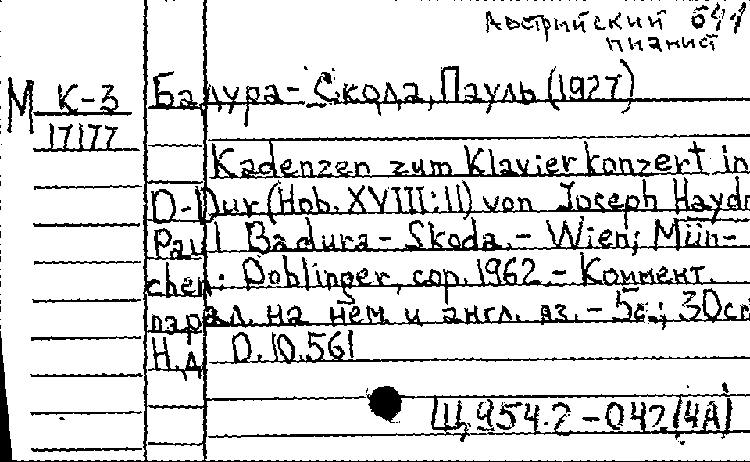 Австрийский 644
пианист
М К-3 Бадура-Скода, Пауль (1927)
17177
Kadenzen zum Klavierkonzert in
D-Dur (Hob. XVIII:11) von Joseph Haydn
Paul Badura-Skoda. – Wien; Mün-
chen: Doblinger, cop. 1962. – Коммент.
парал. на нем. и англ. яз. – 5с.; 30cm
Н.д. D.10.561
Щ954.2-042(4А)